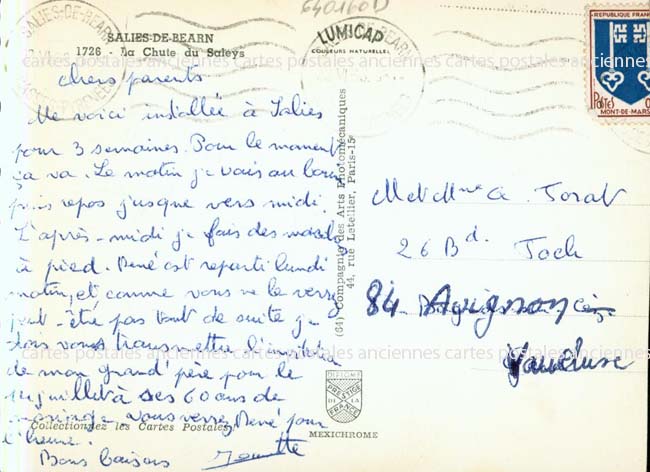 640160D
SALIES-DE-BEARN
1726 - La Chute du Saleys
LUMICAP
COULEURS NATURELLES
REPUBLIQUE FRANC
Postes
MONT-DE-MARS
chers parents
Me voici installée à Salies
pour 3 semaines. Pour le moment
ça va. Le matin je vais au bain
puis repos jusque vers midi.
L'après-midi je fais des
à pied. René est reparti lundi
matin, et comme vous ne le verrez
peut-être pas tout de suite je
vous transmettre l'invitation
de mon grand'père pour le
juillet à ses 60 ans de
mariage. Vous verrez René pour
l'heure.
Bons baisers
(64) Compagnie des Arts Photomécaniques
44, rue Letellier, Paris-15e
M et Mme
26 Bd. Foch
84 Avignon
Vaucluse
Collectionnez les Cartes Postales
PRESTIGE
DE LA
FRANCE
MEXICHROME
cartes postales anciennes cartes postales anciennes
cartes postales anciennes cartes postales anciennes